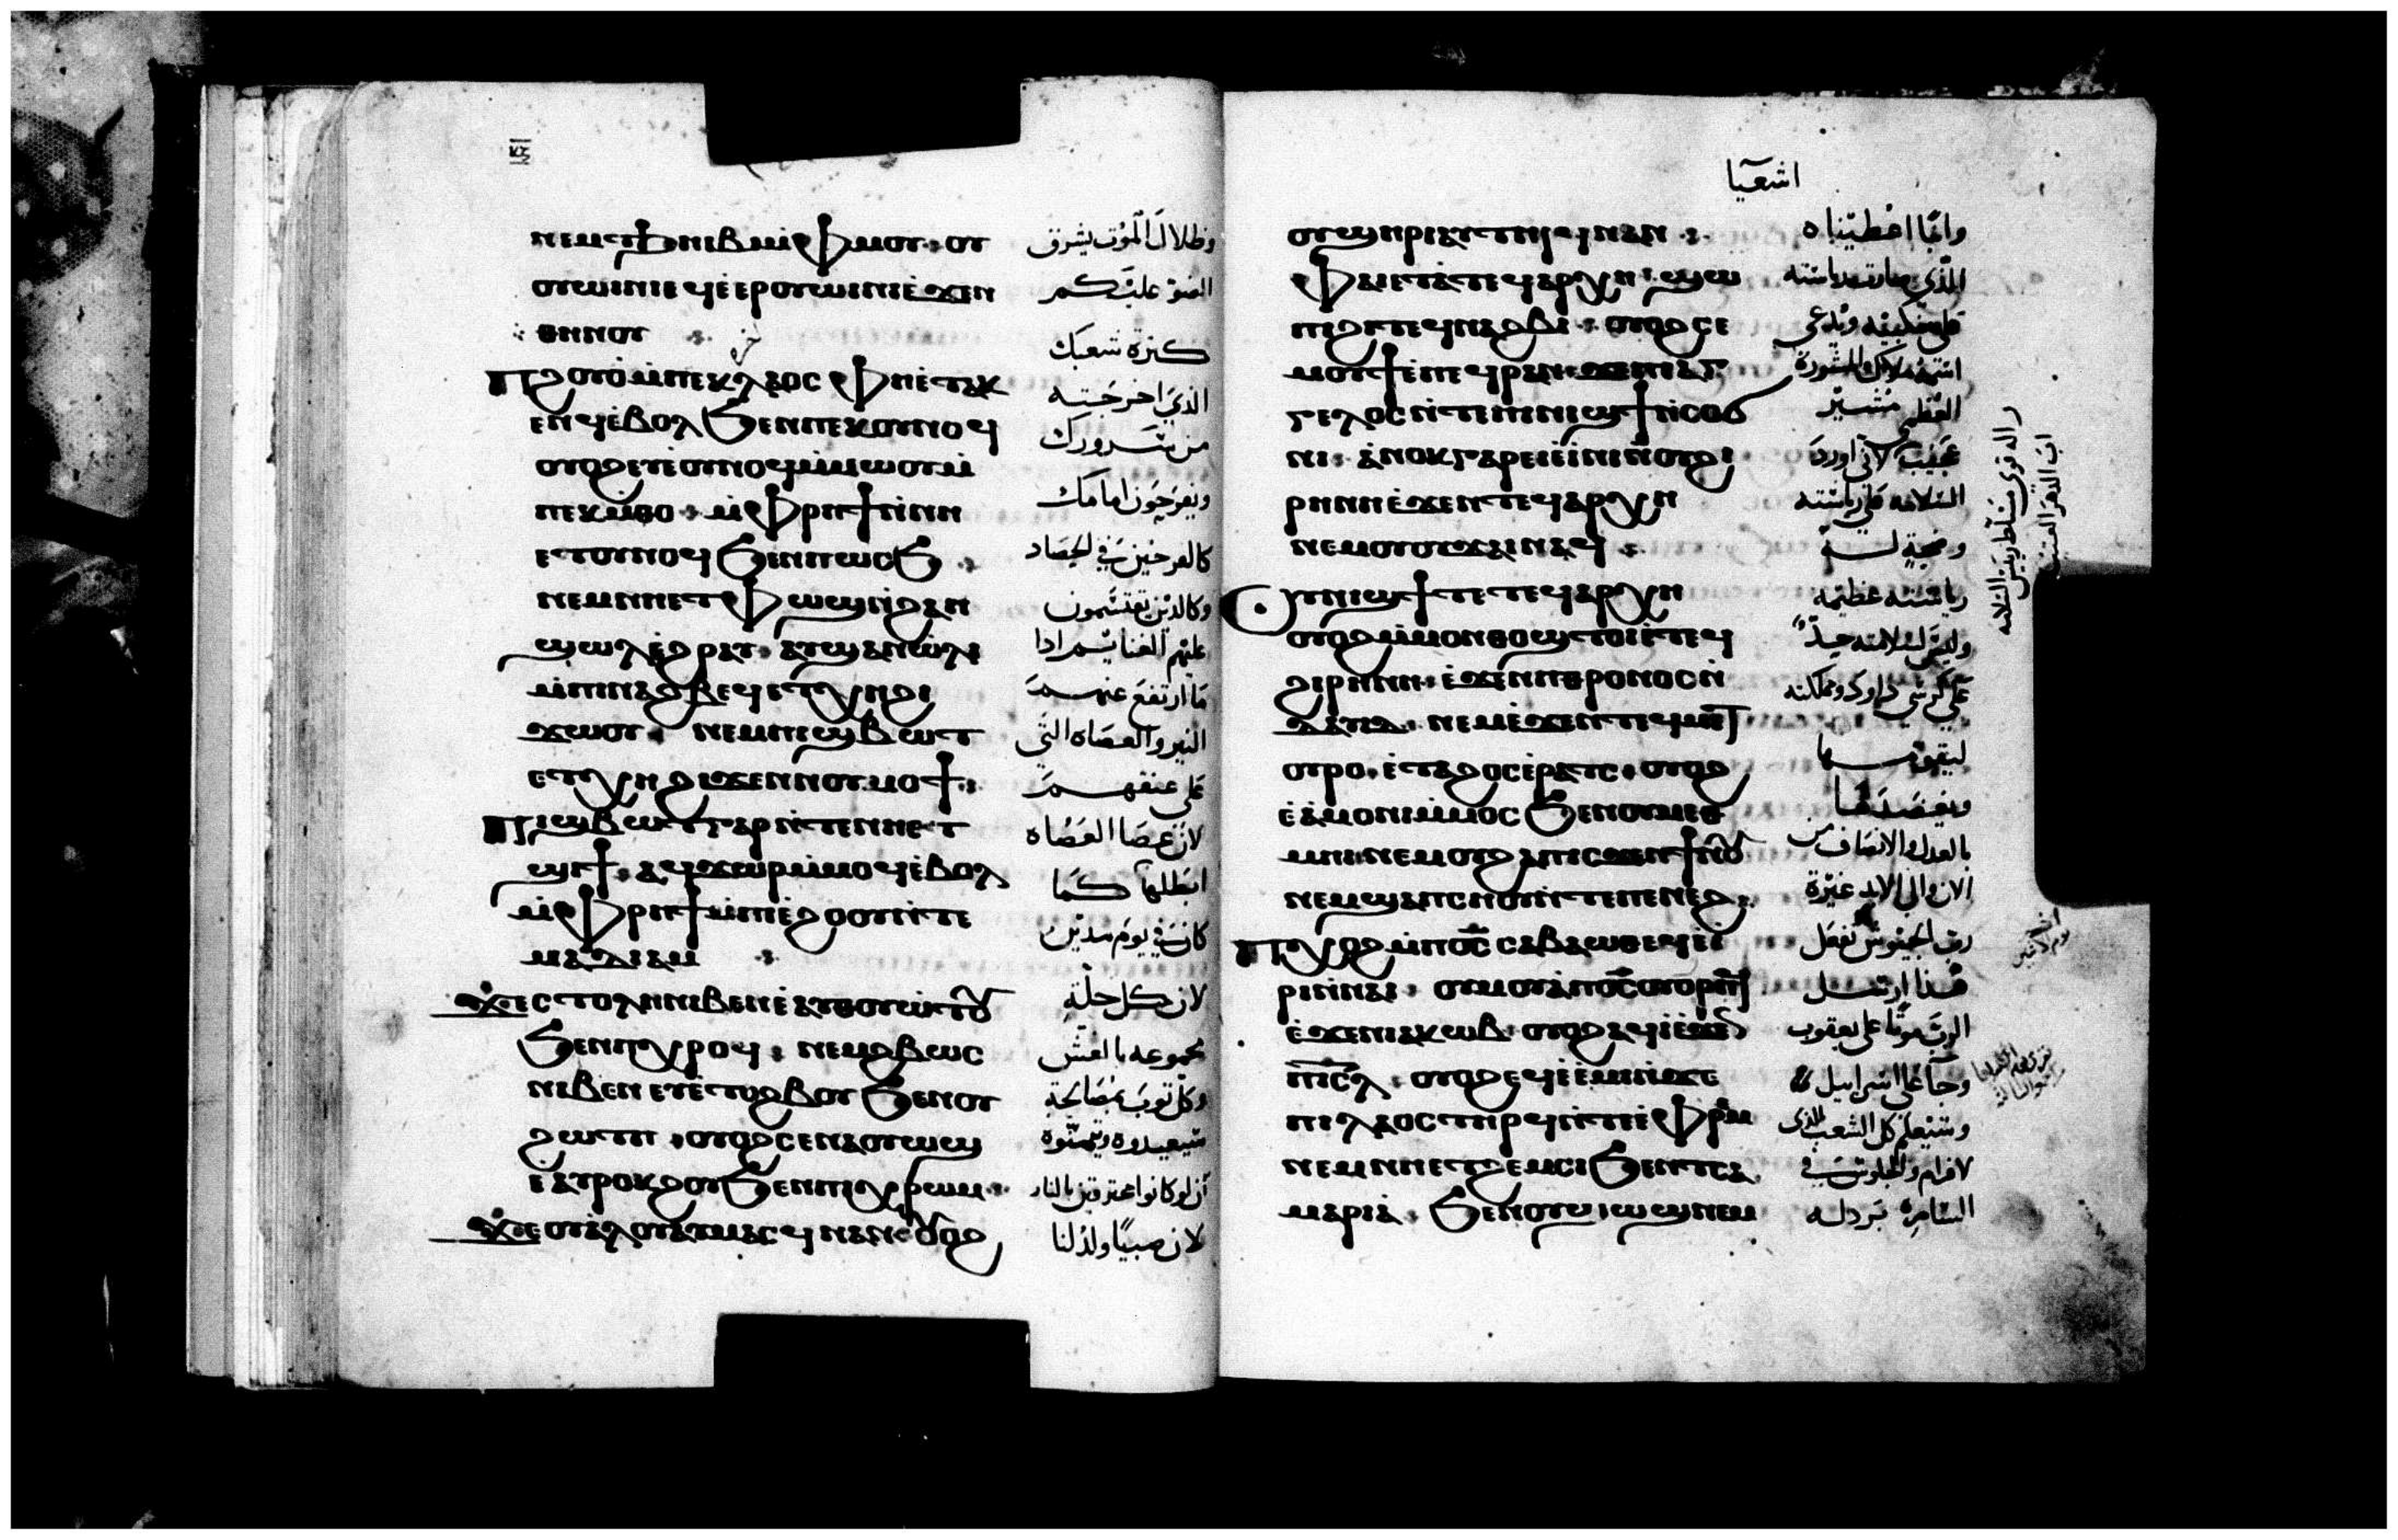 ⲛⲉⲙⲧϧⲏⲓⲃⲓⲙ̀ⲫⲙⲟⲩ ⲟⲩ
ⲟⲩⲱⲓⲛⲓ ⲉϥⲉ̀ⲉⲣⲟⲩⲱⲓⲛⲓ ⲉ̀ϫⲉⲛ
ⲑⲏⲛⲟⲩ
ⲡϩⲟⲩⲟ̀ ⲙ̀ⲡⲉⲕⲗⲁⲟⲥ ⲫⲏⲉ̀ⲧⲁⲕ
ⲉⲛϥ ⲉ̀ⲃⲟⲗ ϧⲉⲛⲡⲉⲕⲟⲩⲛⲟϥ
ⲟⲩⲟϩ ⲉⲩⲉ̀ⲟⲩⲛⲟϥ ⲙ̀ⲙⲱⲟⲩ ⲙ̀
ⲡⲉⲕⲙⲑⲟ ⲙ̀ⲫⲣⲏϯ ⲛ̀ⲛⲏ
ⲉⲧⲟⲩⲛⲟϥ ϧⲉⲛⲡⲱⲥϧ
ⲛⲉⲙⲛⲏⲉⲧⲫⲱϣ ⲛ̀ϩⲁⲛ
ϣⲱⲗ ⲉ̀ϩⲣⲁⲩ ⲁⲩϣⲁⲛⲱ̀ⲗⲓ
ⲙ̀ⲡⲓⲛⲁϩⲃⲉϥ ⲉⲧⲭⲏ ϩⲓ
ϫⲱⲟⲩ ⲛⲉⲙⲡⲓϣⲃⲱⲧ
ⲉⲧⲭⲏ ϩⲓϫⲉⲛⲛⲟⲩⲙⲟϯ
ⲡⲓϣⲃⲱⲧ ⲅⲁⲣ ⲛ̀ⲧⲉⲛⲏⲉⲧ
ϣⲏϯ ⲁϥϫⲱⲣ ⲙ̀ⲙⲟϥ ⲉ̀ⲃⲟⲗ
ⲙ̀ⲫⲣⲏϯ ⲙ̀ⲡⲓⲉ̀ϩⲟⲟⲩ ⲛ̀ⲧⲉ
ⲙⲁⲇⲓⲁⲙ
ϫⲉ ⲥⲧⲟⲗⲏ ⲛⲓⲃⲉⲛ ⲉ̀ⲁⲩⲑⲟⲩⲱⲧⲟⲩ
ϧⲉⲛⲡⲓⲭⲣⲟϥ ⲛⲉⲙϩⲃⲱⲥ
ⲛⲓⲃⲉⲛ ⲉⲩⲉ̀ⲧⲟϩⲃⲟⲩ ϧⲉⲛⲟⲩ
ϩⲱⲧⲡ ⲟⲩⲟϩ ⲥⲉⲛⲁⲟⲩⲱϣ
ⲉⲁⲩⲣⲟⲕϩⲟⲩ ϧⲉⲛⲡⲓⲭⲣⲱⲙ
ϫⲉ ⲟⲩⲁ̀ⲗⲟⲩ ⲁⲩⲙⲁⲥϥ ⲛⲁⲛ ⲟⲩⲟϩ
وظلال الموت يشرق
الضو عليكم
كثرة شعبك
الذي اخرجته
من سرورك
ويفرحون امامك
كالفرحين في الحصاد
وكالذين يقتسمون
عليهم الغنايم اذا
ما ارتفع عنهم
النير والعصاه التي
على عنقهم
لان عصا العصاه
ابطلها كما
كان في يوم مدين
لان كل حلة
مجموعه بالغش
وكل ثوب بمصالحة
ان لو كانوا محترقين بالنار
لان صبيًا ولد لنا
اشعيا
ⲟⲩϣⲏⲣⲓ ⲁⲩⲧⲏⲓϥ ⲛⲁⲛ
ⲫⲁⲓ ⲉⲧⲁ̀ⲧⲉϥⲁⲣⲭⲏ ϣⲱ
ⲡⲓ ϩⲓⲧⲉϥⲛⲁϩⲃⲓ ⲟⲩⲟϩ ⲥⲉ
ⲙⲟⲩϯ ⲉ̀ⲡⲉϥⲣⲁⲛ ϫⲉⲡⲓⲁⲅ
ⲅⲉⲗⲟⲥ ⲛ̀ⲧⲉⲡⲓⲛⲓϣϯ ⲛ̀ⲥⲟϭ
ⲛⲓ ⲁ̀ⲛⲟⲕ ⲅⲁⲣ ⲉⲓⲉ̀ⲓⲛⲓ ⲛ̀ⲟⲩϩⲓ
ⲣⲏⲛⲏ ⲉ̀ϫⲉⲛⲧⲉϥⲁⲣⲭⲏ
ⲛⲉⲙⲟⲩⲟⲩϫⲁⲓ ⲛⲁϥ
ⲟⲩⲛⲓϣϯ ⲧⲉ ⲧⲉϥⲁⲣⲭⲏ
ⲟⲩⲟϩ ⲙ̀ⲙⲟⲛ ⲑⲟϣ ⲧⲟⲓ ⲛ̀ⲧⲉϥ
ϩⲓⲣⲏⲛⲏ ⲉ̀ϫⲉⲛⲡⲓⲑⲣⲟⲛⲟⲥ ⲛ̀
ⲇⲁⲩⲓⲇ ⲛⲉⲙⲉ̀ϫⲉⲛⲧⲉϥⲙⲉⲧ
ⲟⲩⲣⲟ ⲉ̀ⲧⲁϩⲟⲥ ⲉ̀ⲣⲁⲧⲥ ⲟⲩⲟϩ
ⲉ̀ⲁ̀ⲙⲟⲛⲓ ⲙ̀ⲙⲟⲥ ϧⲉⲛⲟⲩⲙⲉⲑ
ⲙⲏⲓ ⲛⲉⲙⲟⲩϩⲁⲡ ⲓⲥϫⲉⲛϯⲛⲟⲩ
ⲛⲉⲙϣⲁⲡⲥⲏⲟⲩ ⲛ̀ⲧⲉⲡⲓⲉⲛⲉϩ
ⲡⲭⲟϩ ⲙ̀ⲡⲟ̅ⲥ̅ ⲥⲁⲃⲁⲱⲑ ⲉϥⲉ̀ⲓ
ⲣⲓ ⲛ̀ⲛⲁⲓ ⲟⲩⲙⲟⲩ ⲁ̀ⲡⲟ̅ⲥ̅ ⲟⲩⲟⲣⲡϥ
ⲉ̀ϫⲉⲛⲓⲁⲕⲱⲃ ⲟⲩⲟϩ ⲁϥⲓ̀ ⲉ̀ϫⲉⲛ
ⲡⲓⲥ̅ⲗ̅ ⲟⲩⲟϩ ⲉϥⲉ̀ⲉ̀ⲙⲓ ⲛ̀ϫⲉ
ⲡⲓⲗⲁⲟⲥ ⲧⲏⲣϥ ⲛ̀ⲧⲉⲉⲫⲣⲉⲙ
ⲛⲉⲙⲛⲏⲉⲧϩⲉⲙⲥⲓ ϧⲉⲛⲧⲥⲁ
ⲙⲁⲣⲓⲁ̀ ϧⲉⲛⲟⲩϣⲱϣ ⲛⲉⲙ
وابنًا اعطيناه
الذي صارت رياسته
على منكبيه ويدعى
اسمه ملاك المشورة
العظمى مشير
عجيب لاني اورد
السلامه على رياسته
وصحة له
رياسته عظيمه
وليس لسلامته حدّ
على كرسي داود ومملكته
ليقومها
ويعضدها
بالعدل والانصاف من
الان والى الابد غيرة
رب الجيوش تفعل
هذا ارسل
الرب موتًا على يعقوب
وجا على اسرايل
وسيعلم كل الشعب الذي
لافرام والجلوس في
السامرة